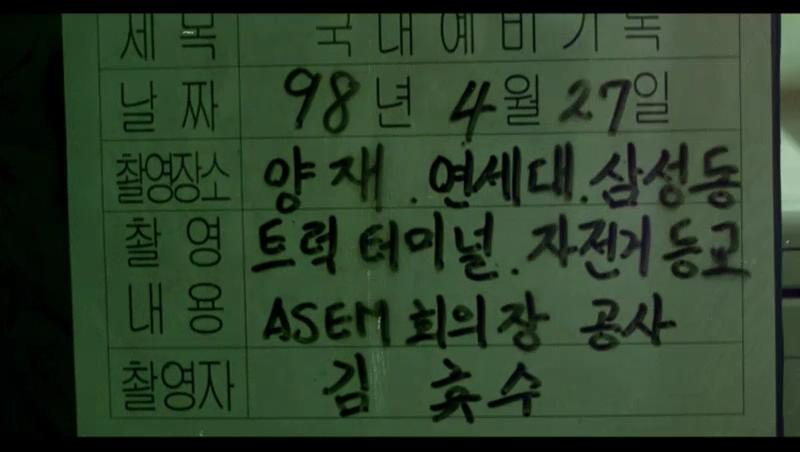 제목 국내예비기록
날짜 98년 4월 27일
촬영장소 양재. 연세대. 삼성동
촬영 트럭 터미널. 자전거 등교
내용 ASEM 회의장 공사
촬영자 김 수